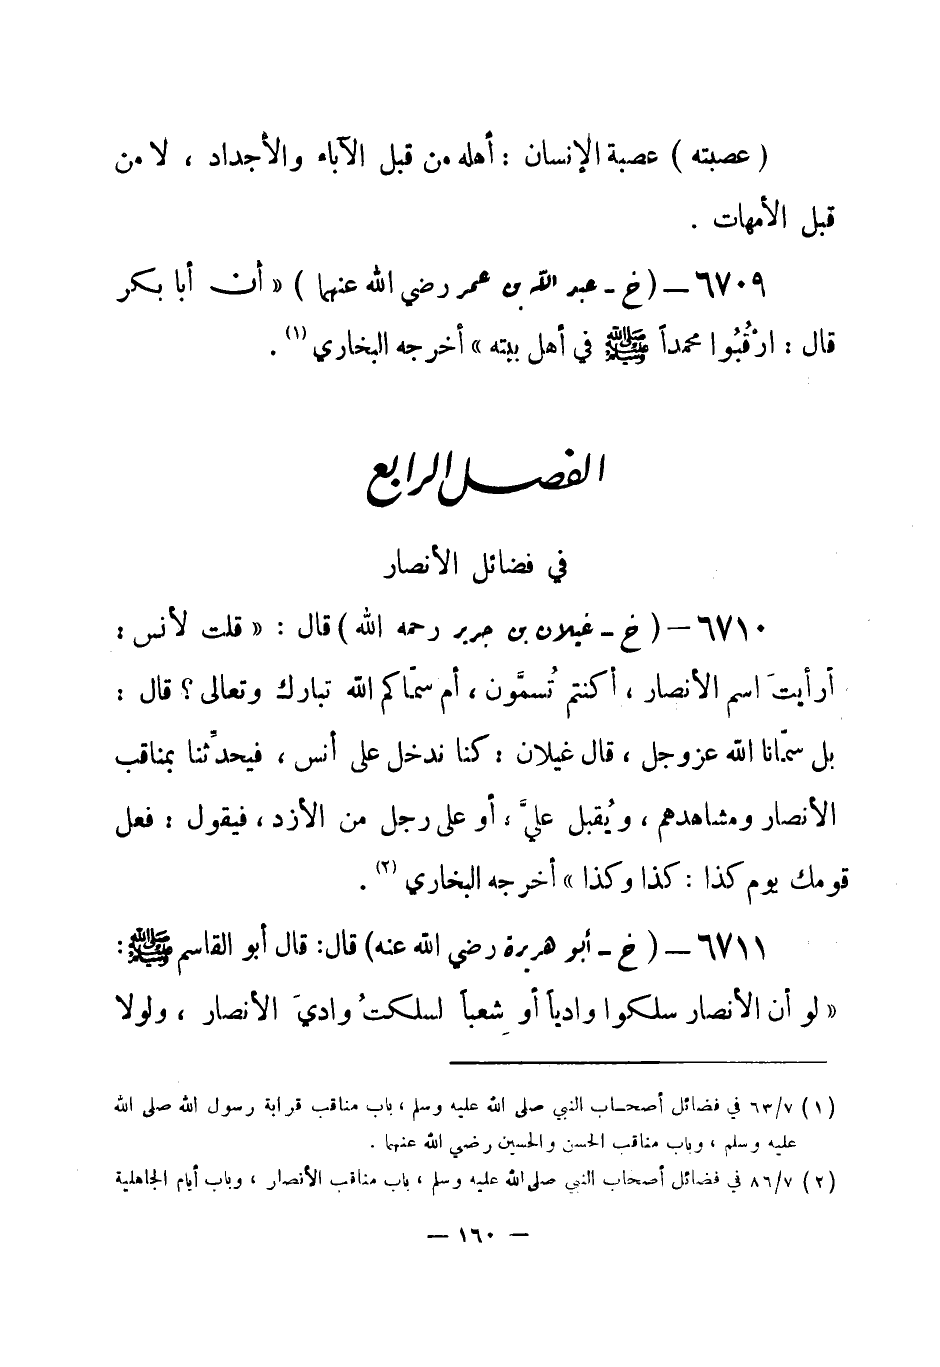 ( عصبته ) عصبة الإنسان : أهله من قبل الآباء والأجداد ، لا من
قبل الأمهات .
٦٧٠٩ – ( خ - عبد الله بن عمر رضي الله عنهما ) « أن أبا بكر
قال : ارْقُبُوا محمداً ﷺ في أهل بيته » أخرجه البخاري (١) .
الفصل الرابع
في فضائل الأنصار
٦٧١٠ – ( خ - غيلان بن جرير رحمه الله ) قال : « قلت لأنس :
أرأيتَ اسم الأنصار ، أكنتم تُسمَّون ، أم سمّاكم الله تبارك وتعالى ؟ قال :
بل سمّانا الله عز وجل ، قال غيلان : كنا ندخل على أنس ، فيحدِّثنا بمناقب
الأنصار ومشاهدهم ، ويُقبل عليَّ ، أو على رجل من الأزد ، فيقول : فعل
قومك يوم كذا : كذا وكذا » أخرجه البخاري (٢) .
٦٧١١ – ( خ - أبو هريرة رضي الله عنه ) قال : قال أبو القاسم ﷺ :
« لو أن الأنصار سلكوا وادياً أو شِعباً لسلكتُ واديَ الأنصار ، ولولا
(١) ٦٣/٧ في فضائل أصحاب النبي صلى الله عليه وسلم ، باب مناقب قرابة رسول الله صلى الله
عليه وسلم ، وباب مناقب الحسن والحسين رضي الله عنهما .
(٢) ٨٦/٧ في فضائل أصحاب النبي صلى الله عليه وسلم ، باب مناقب الأنصار ، وباب أيام الجاهلية
– ١٦٠ –